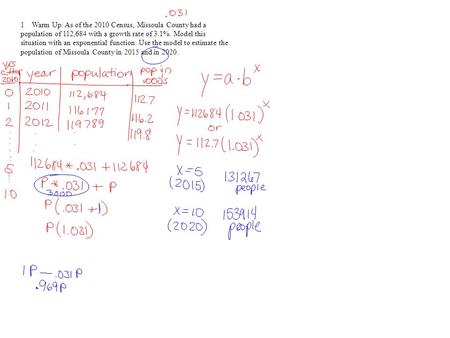 .031
1 Warm Up: As of the 2010 Census, Missoula County had a
population of 112,684 with a growth rate of 3.1%. Model this
situation with an exponential function. Use the model to estimate the
population of Missoula County in 2015 and in 2020.
yrs after 2010 year population pop in 1000's
0 2010 112,684 112.7
1 2011 116177 116.2
2 2012 119789 119.8
5
10
112684 * .031 + 112684
P * .031 + P
P(.031 + 1)
P(1.031)
1P - .031P
.969P
y = a · b^x
y = 112684(1.031)^x
or
y = 112.7(1.031)^x
x=5 131267
(2015) people
x=10 153914
(2020) people